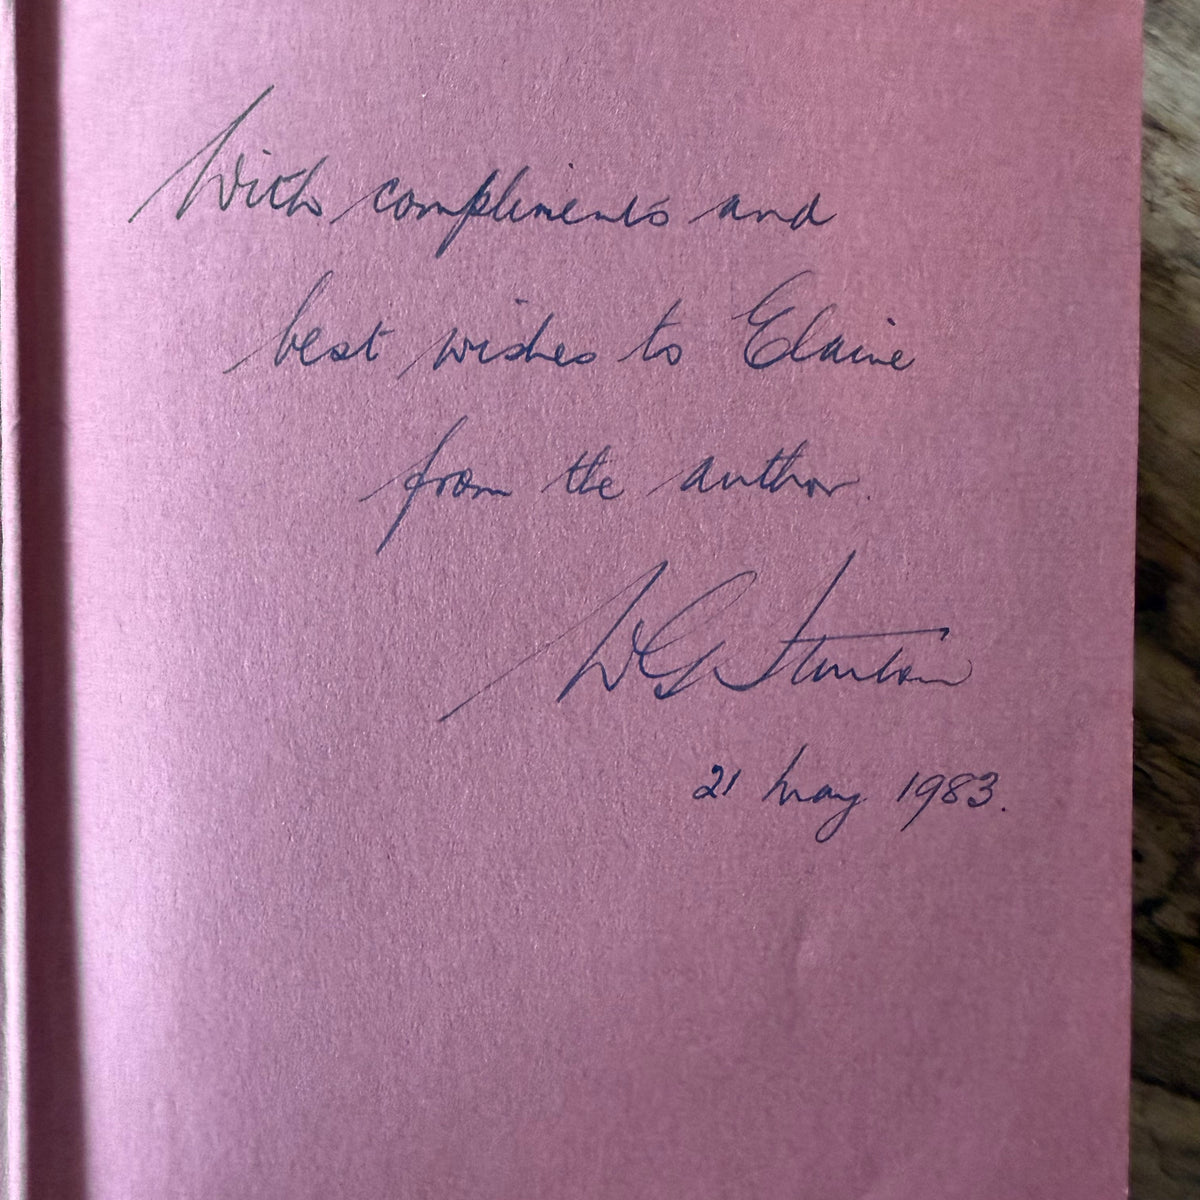 With compliments and
best wishes to Elaine
from the author.
WG Stanton
21 May 1983.